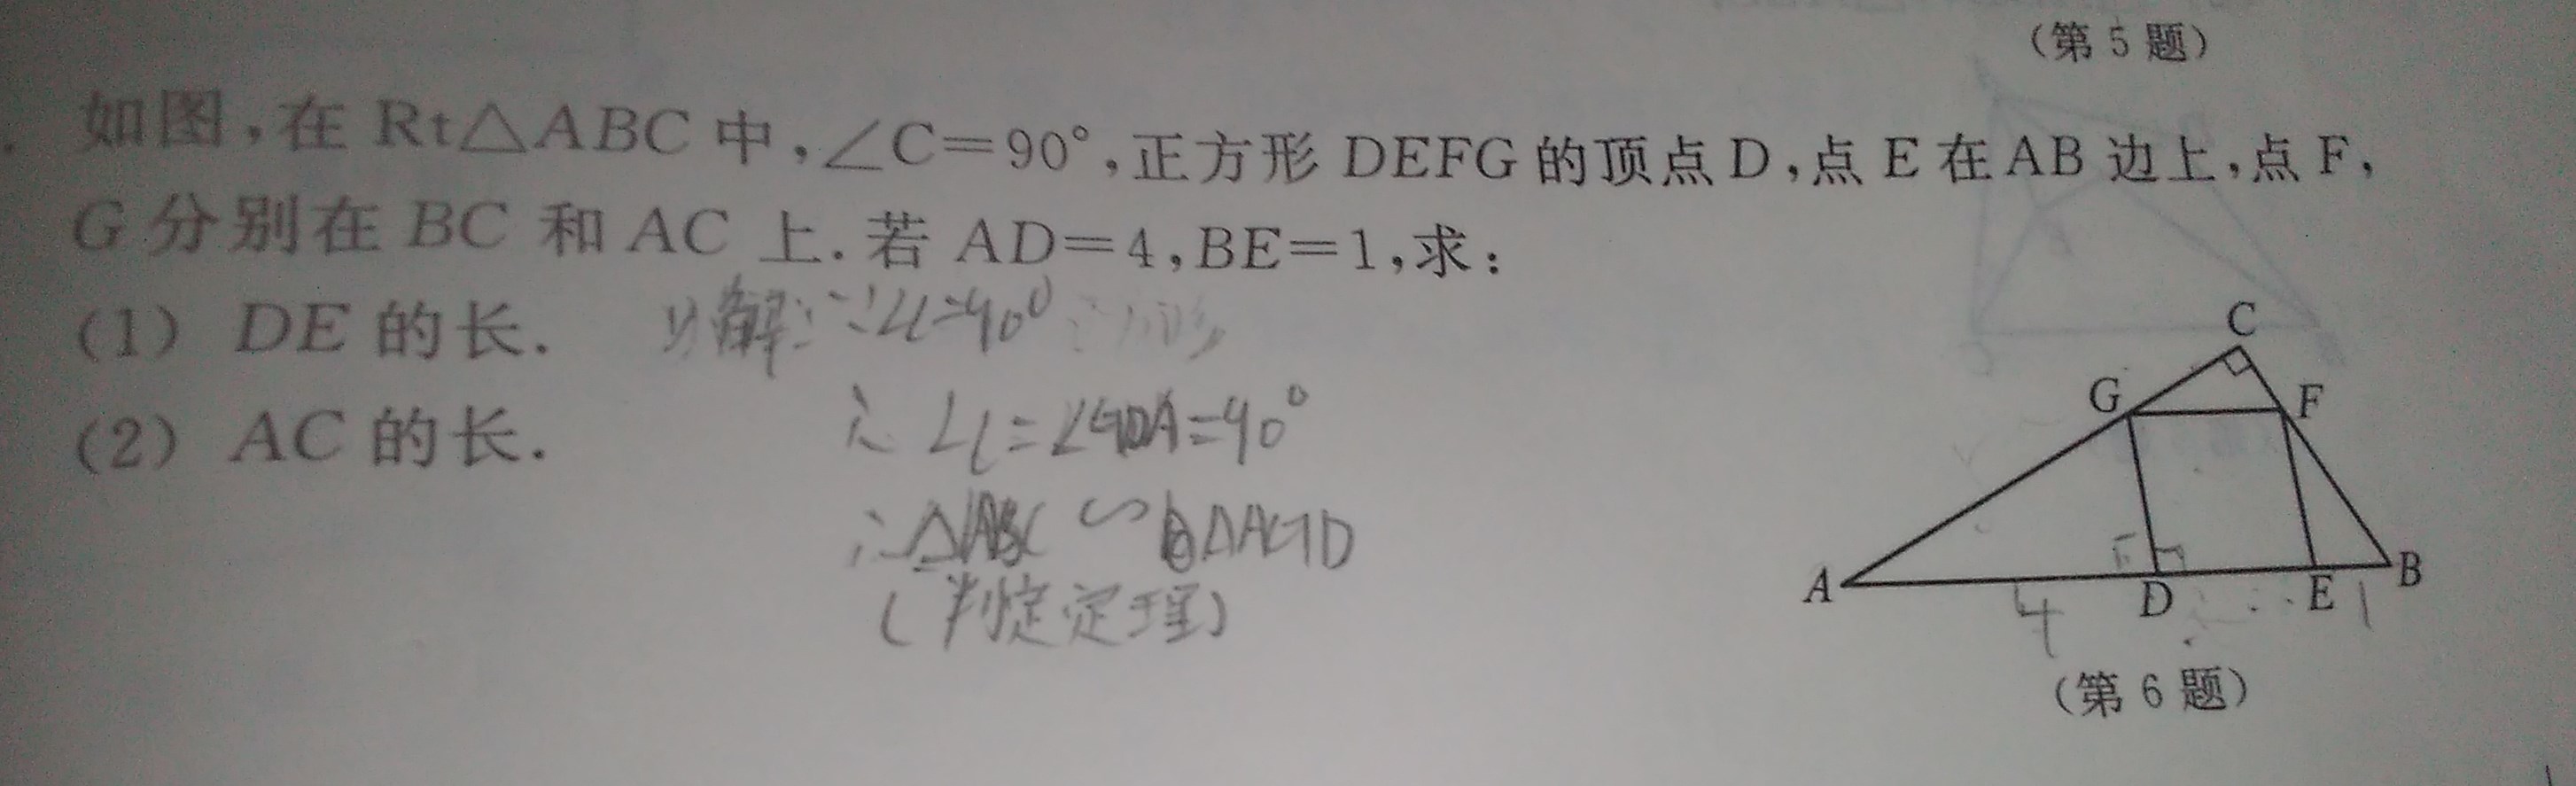 (第 5 题)
如图,在 Rt△ABC 中,∠C=90°,正方形 DEFG 的顶点 D,点 E 在 AB 边上,点 F,
G 分别在 BC 和 AC 上.若 AD=4,BE=1,求:
(1) DE 的长.
解:∵∠C=90°
(2) AC 的长.
∴∠C=∠GDA=90°
∴△ABC∽△AGD
(判定定理)
C
G
F
A
D
E
B
4
1
(第 6 题)